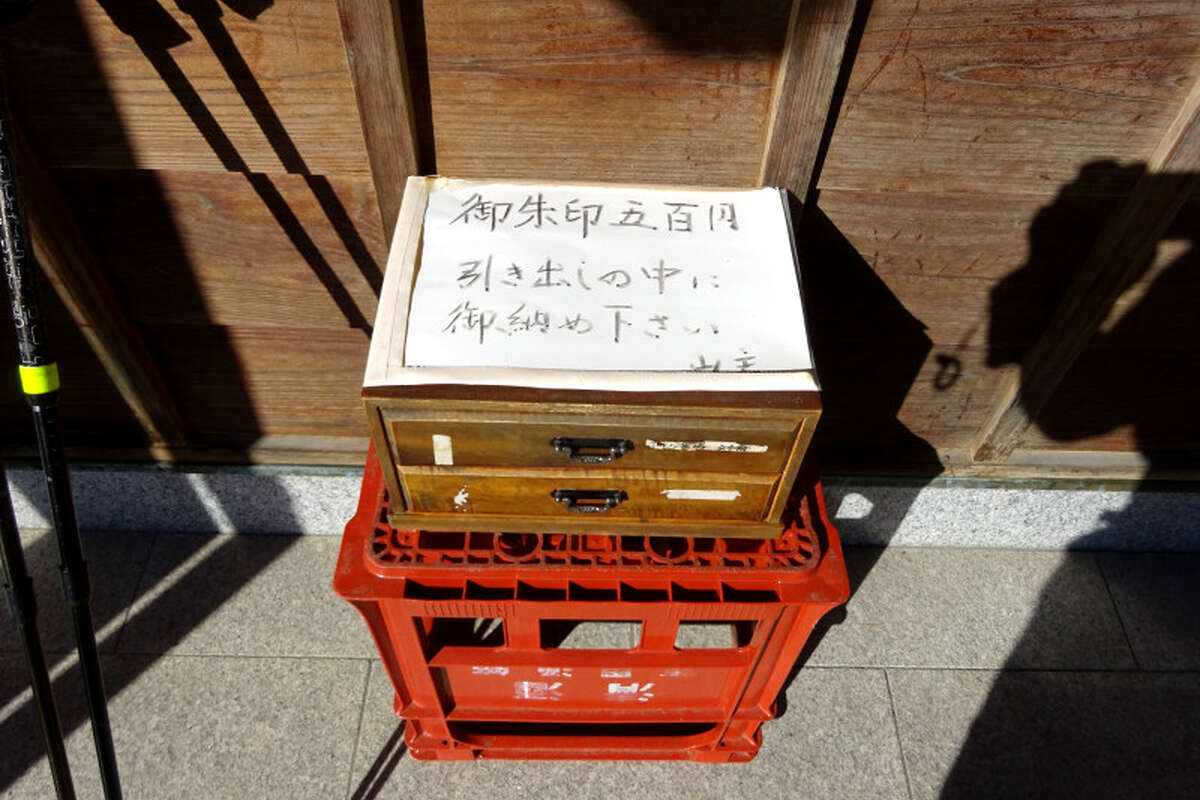 御朱印五百円
引き出しの中に
御納め下さい